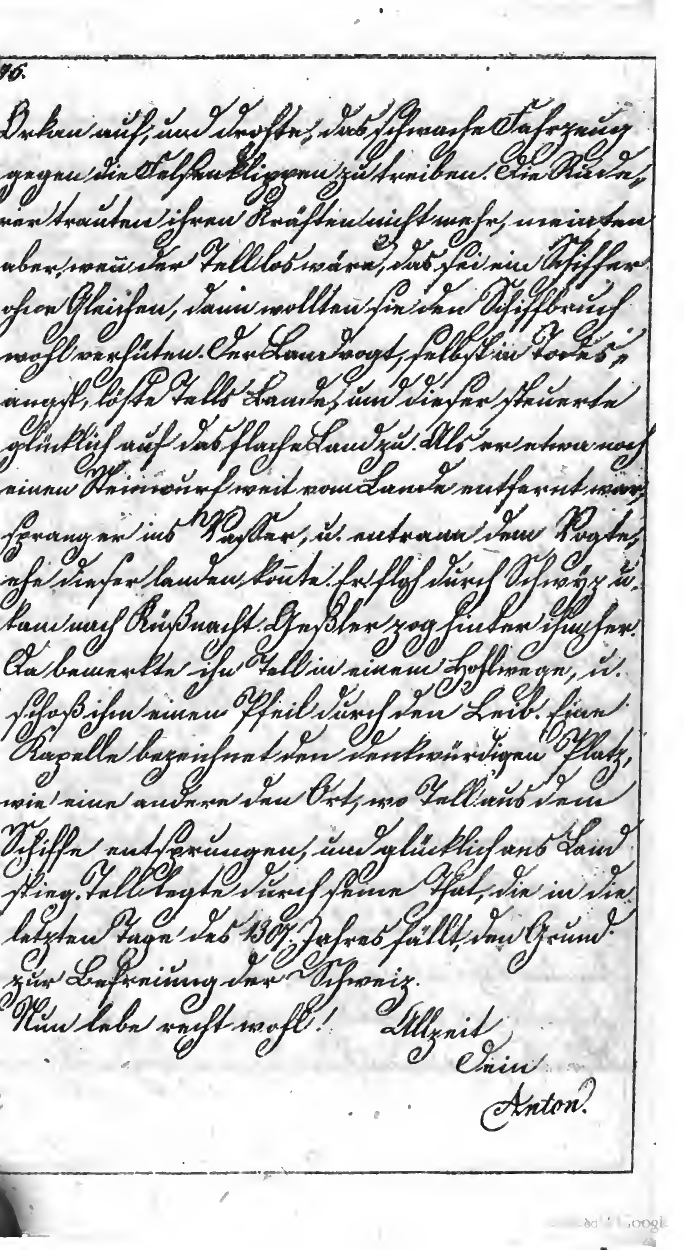 76.
Orkan auf, und drohte, das schwache Fahrzeug
gegen die Felsenklippen zu treiben. Die Rude,
rer trauten ihren Kräften nicht mehr, meinten
aber, weñ der Tell los wäre, das sei ein Schiffer
ohne Gleichen, dann wollten sie den Schiffbruch
wohl verhüten. Der Landvogt, selbst in Todes,
angst, löste Tells Bande, und dieser steuerte
glücklich auf das flache Land zu. Als er etwa noch
einen Steinwurf weit vom Lande entfernt war,
sprang er ins Wasser, u. entrann dem Vogte,
ehe dieser landen kon̄te. Er floh durch Schwyz u.
kam nach Küßnacht. Geßler zog hinter ihm her.
Da bemerkte ihn Tell in einem Hohlwege, u.
schoß ihm einen Pfeil durch den Leib. Eine
Kapelle bezeichnet den denkwürdigen Platz,
wie eine andere den Ort, wo Tell aus dem
Schiffe entsprungen, und glücklich ans Land
stieg. Tell legte durch seine That, die in die
letzten Tage des 1307. Jahres fällt, den Grund
zur Befreiung der Schweiz.
Nun lebe recht wohl! Allzeit
Dein
Anton.
Google